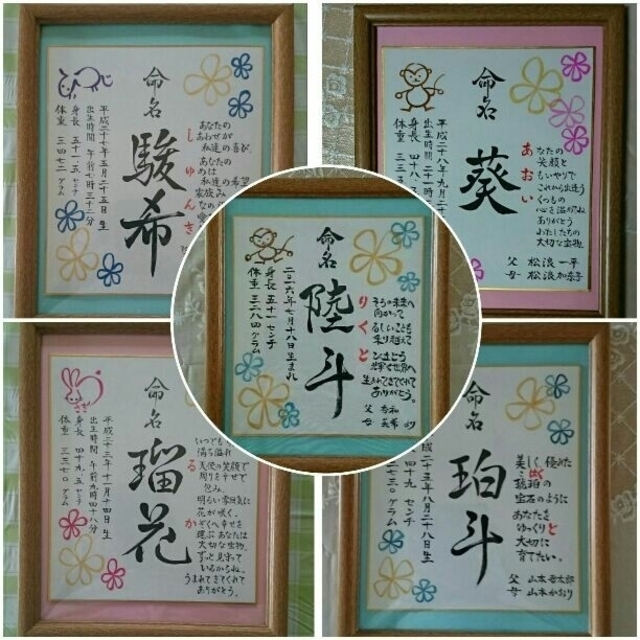 命名
駿希
平成二十七年五月二十五日 生
出生時間 午前七時三十二分
身長 五十一.五 センチ
体重 三四七二 グラム
しゅんき
あなたの
しあわせが
私達の喜び
あなたの
私達の希望
命名
葵
平成二十八年九月二十
出生時間 二十一時三
身長 四十八.
体重 三三
あおい
あなたの
笑顔と
おもいやりで
これから出逢う
いくつもの
心を温かね
ありがとう
わたしたちの
大切な宝物
父 松浪 一平
母 松浪 加奈子
命名
陸斗
二〇一六年七月十八日 生まれ
身長 五十一センチ
体重 三二八四グラム
りくと
そらの未来へ
向かって
るしいことも
乗り越えて
ひまとう
輝く世界へ
生まれてきてくれて
ありがとう。
父
母
より
命名
瑠花
平成二十三年十一月十四日 生
出生時間 午前九時四十八分
身長 四十九.五 センチ
体重 三三七〇 グラム
るか
いつでも
満ち溢れ
天使の笑顔で
周りを幸せで
包み
明るい雰囲気に
花が咲く。
かぞくへ幸せを
運ぶ あなたは
大切な宝物。
ずっと見守って
いるからね。
うまれてきてくれて
ありがとう。
命名
珀斗
十五年八月二十八日生
四十九 センチ
七三〇 グラム
はくと
美しく、優れた
琥珀の
宝石のように
あなたを
ゆっくりと
大切に
育てたい。
父 山本
母 山本 かおり